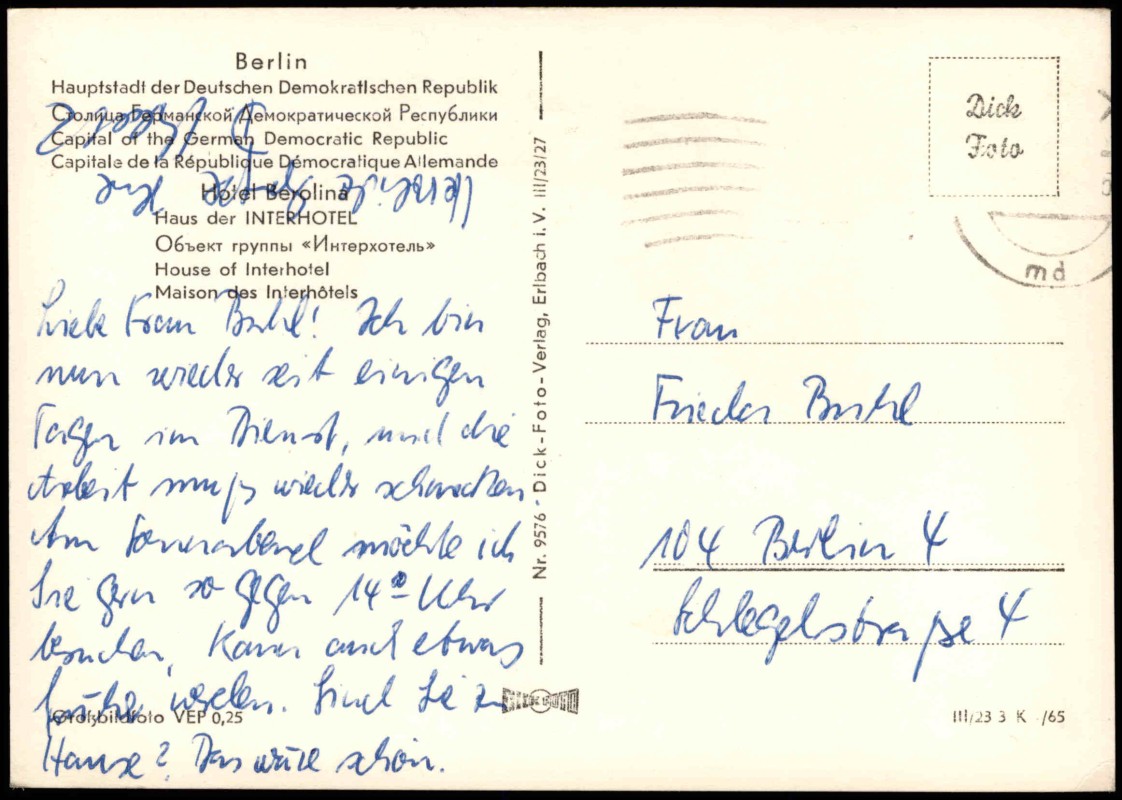 Berlin
Hauptstadt der Deutschen Demokratischen Republik
Столица Германской Демократической Республики
Capital of the German Democratic Republic
Capitale de la République Démocratique Allemande
Hotel Berolina
Haus der INTERHOTEL
Объект группы «Интерхотель»
House of Interhotel
Maison des Interhôtels
Liebe Frau Buhl! Ich bin
nun wieder seit einigen
Tagen im Dienst, und die
Arbeit muß wieder schmecken.
Am Sonnabend möchte ich
Sie gern so gegen 14⁰⁰ Uhr
besuchen, Kann auch etwas
früher werden. Sind Sie zu
Hause? Das wäre schön.
Herzliche Grüße Ihre
Großbildfoto VEP 0,25
Nr. 9576 · Dick-Foto-Verlag, Erlbach i. V. III/23/27
Dick
Foto
md
Frau
Frieda Buhl
104 Berlin 4
Schlegelstraße 4
III/23 3 K /65